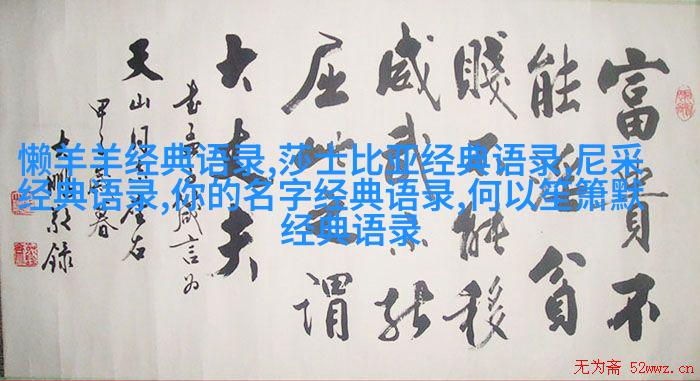 富貴不
能淫貧
賤不能移
威武不能
屈此之謂
大丈夫
言为
天山座右
甲春
大录
懒羊羊经典语录,莎士比亚经典语录,尼采
经典语录,你的名字经典语录,何以笙箫默
经典语录
无为斋 52wwz.cn